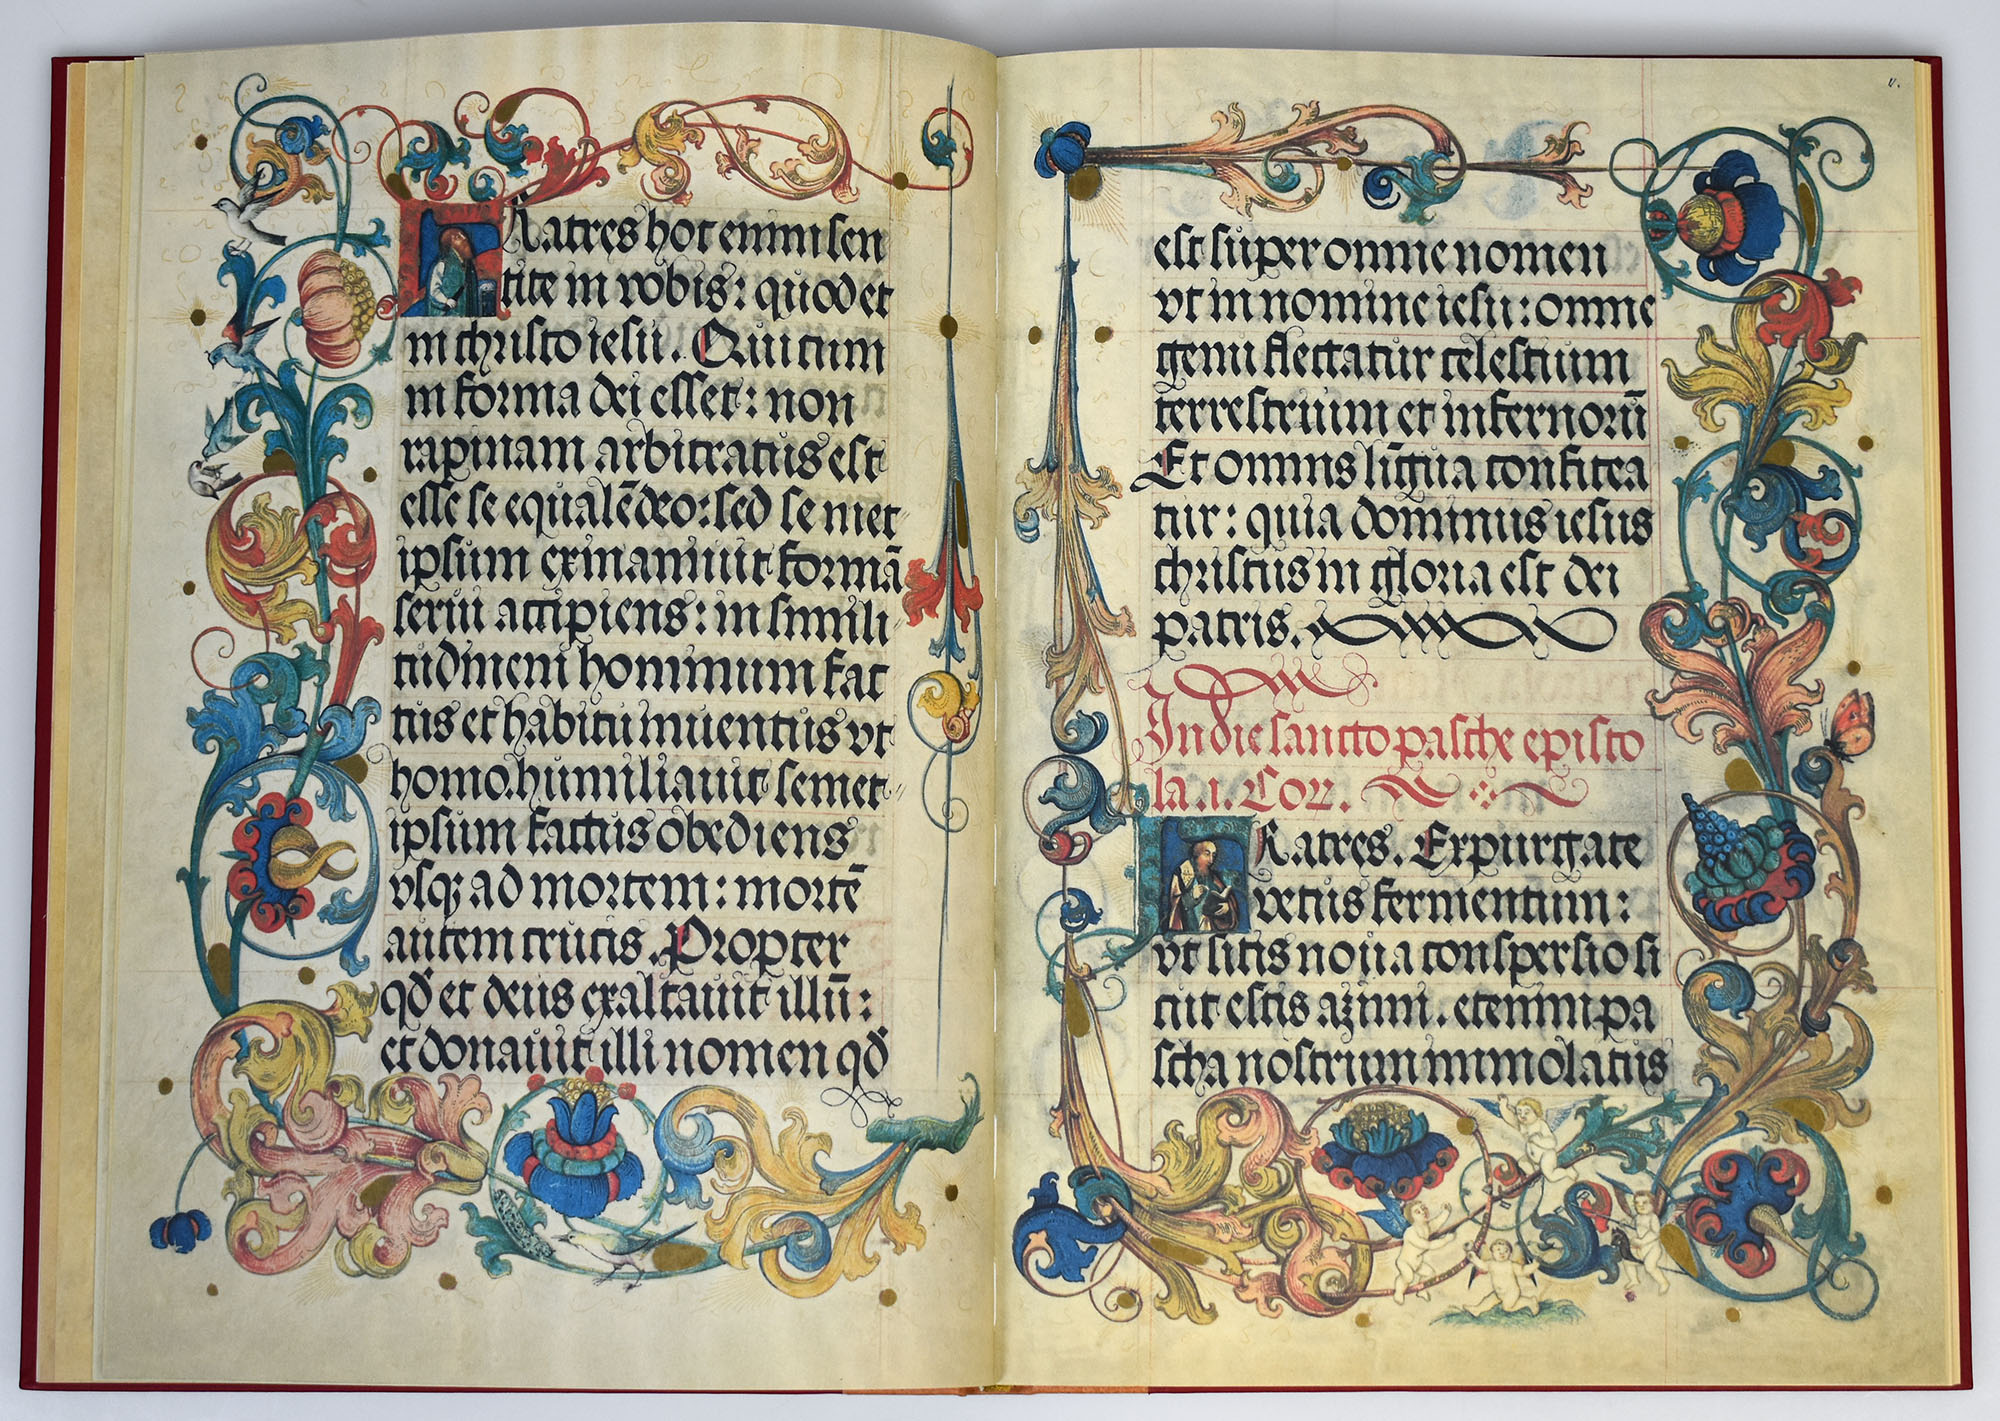 Fratres hoc enim sen
tite in vobis: quod et
in christo iesu. Qui cum
in forma dei esset: non
rapinam arbitratus est
esse se equalē deo: sed se met
ipsum exinanivit formā
servi accipiens: in simili
tudinem hominum fac
tus et habitu inventus vt
homo. humiliavit semet
ipsum factus obediens
vsqꝫ ad mortem: mortē
autem crucis. Propter
qđ et deus exaltavit illū:
et donavit illi nomen qđ
v.
est super omne nomen
vt in nomine iesu: omne
genu flectatur celestium
terrestrium et infernorū
Et omnis lingua confitea
tur: quia dominus iesus
christus in gloria est dei
patris.
In die sancto pasche episto
la .1. Cor.
Fratres. Expurgate
vetus fermentum:
vt sitis nova conspersio si
cut estis azimi. etenim pa
scha nostrum immolatus